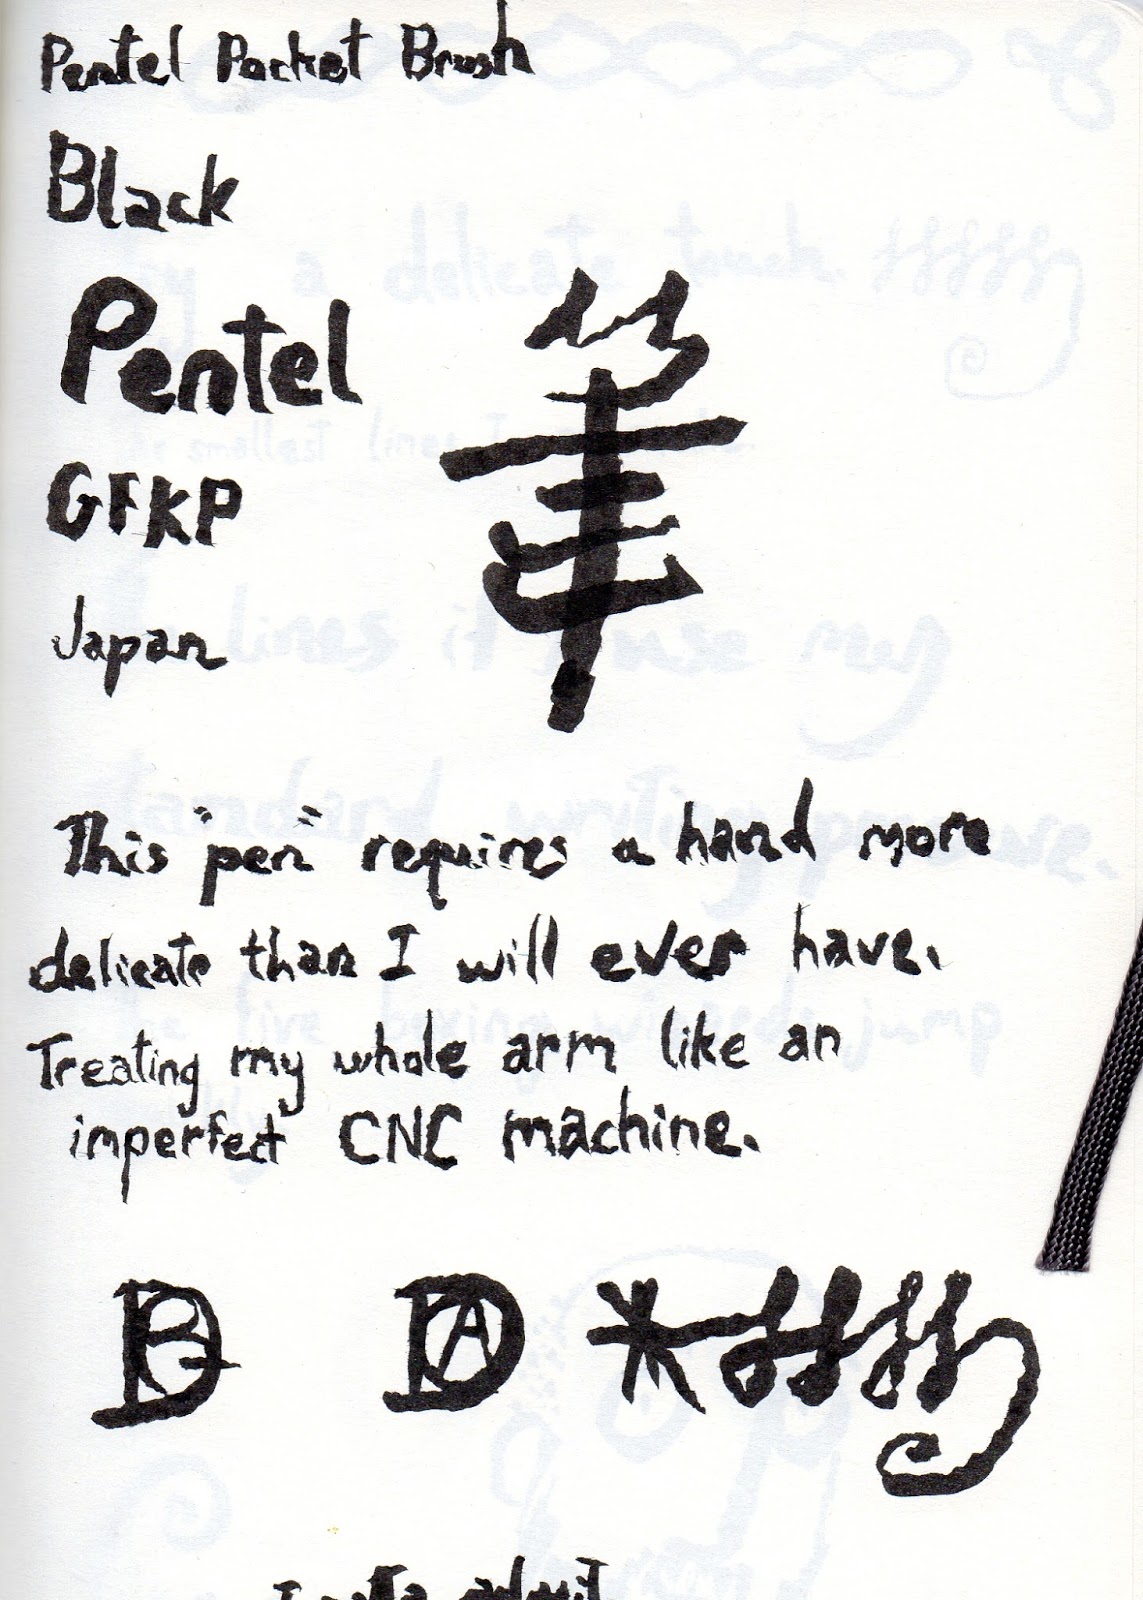 Pentel Pocket Brush
Black
Pentel
筆
GFKP
Japan
This "pen" requires a hand more
delicate than I will ever have.
Treating my whole arm like an
imperfect CNC machine.
I admit